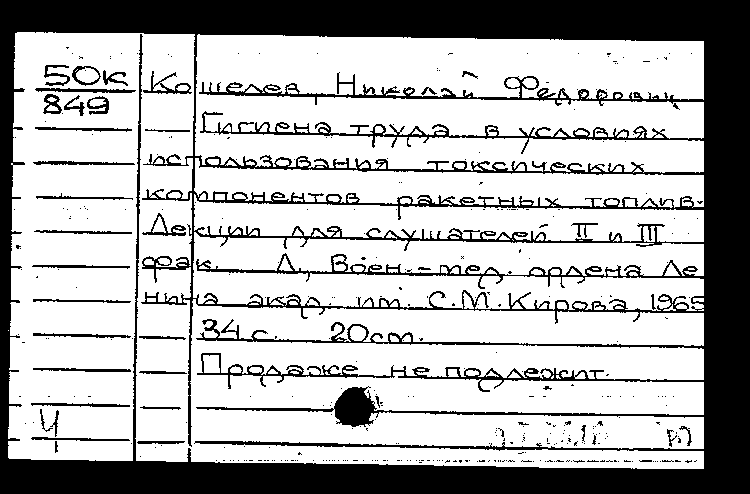 50к
849
Кошелев, Николай Федорович
Гигиена труда в условиях
использования токсических
компонентов ракетных топлив.
Лекции для слушателей II и III
фак. Л., Воен.-мед. ордена Ле
нина акад. им. С.М. Кирова, 1965
34 с. 20см.
Продаже не подлежит.
Ч